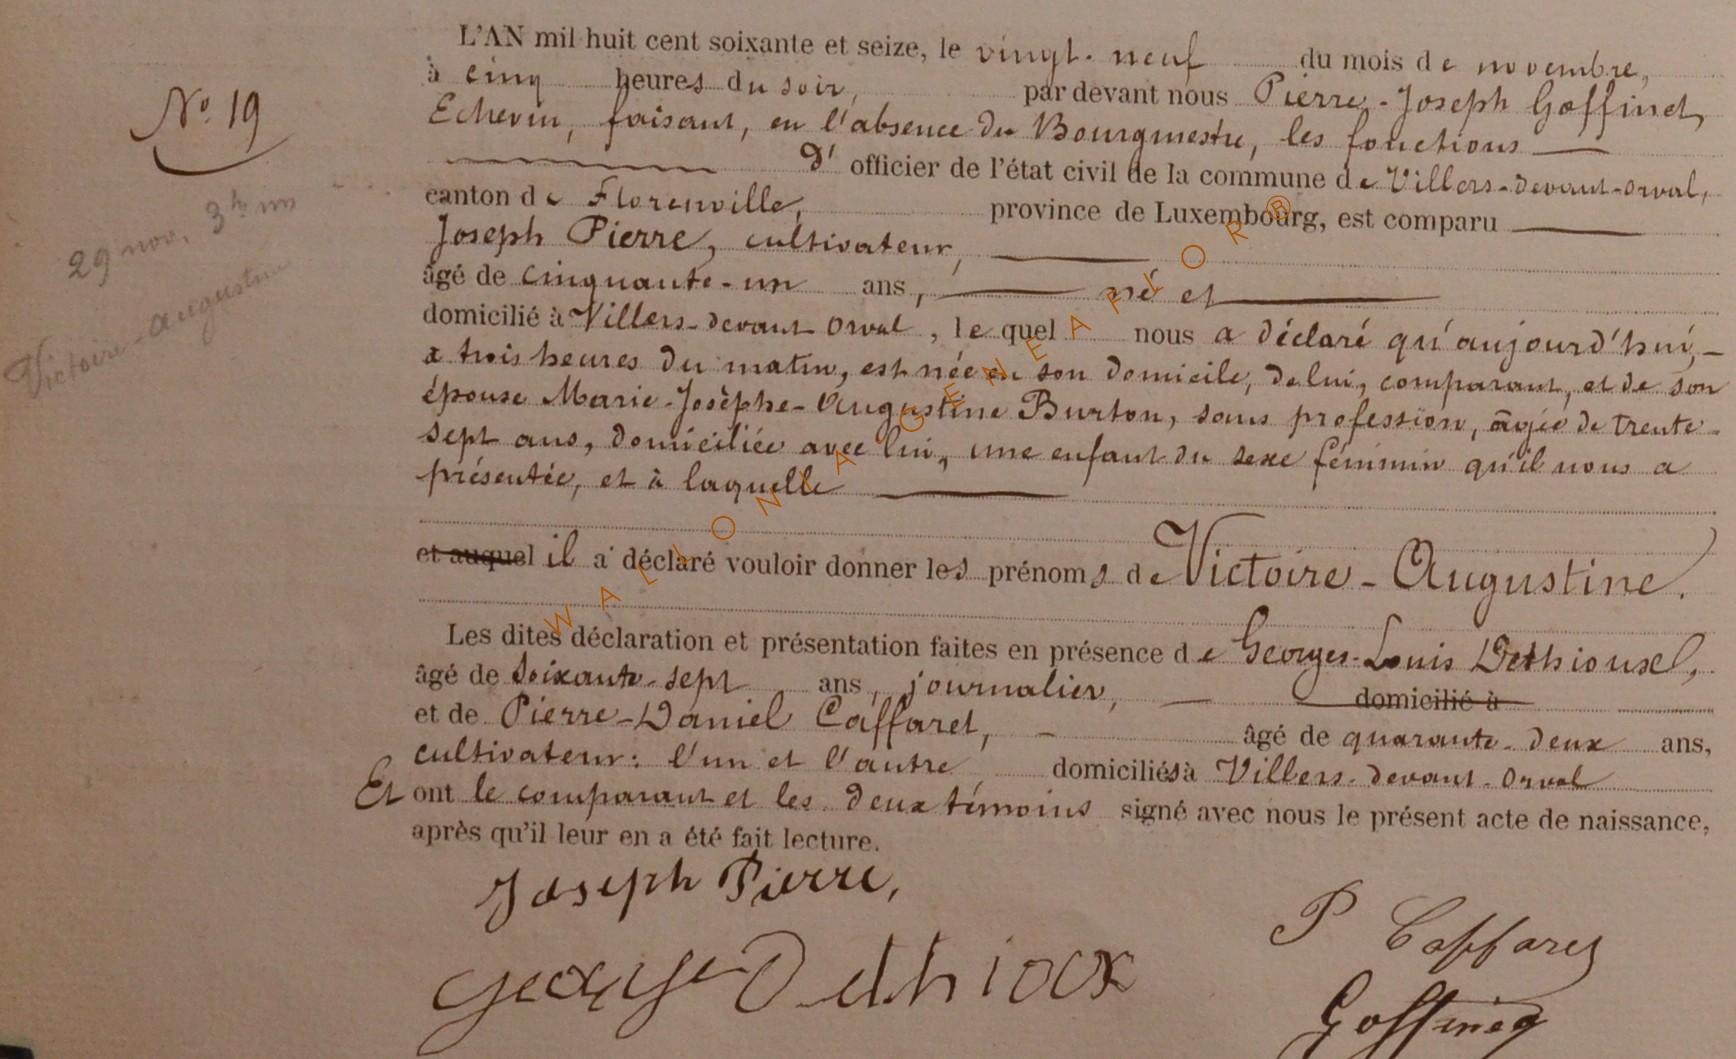 L'AN mil huit cent soixante et seize, le vingt-neuf du mois de novembre,
à cinq heures du soir, par devant nous Pierre-Joseph Goffinet,
Echevin, faisant, en l'absence du Bourgmestre, les fonctions
d'officier de l'état civil de la commune de Villers-devant-orval,
canton de Florenville, province de Luxembourg, est comparu
Joseph Pierre, cultivateur,
âgé de cinquante-un ans, né et
domicilié à Villers-devant-orval, lequel nous a déclaré qu'aujourd'hui,
à trois heures du matin, est née en son domicile, de lui, comparant, et de son
épouse Marie-Josèphe-Augustine Burton, sans profession, âgée de trente-
sept ans, domiciliée avec lui, une enfant du sexe féminin qu'il nous a
présentée, et à laquelle
et auquel il a déclaré vouloir donner les prénoms de Victoire-Augustine.
Les dites déclaration et présentation faites en présence de Georges-Louis
âgé de soixante-sept ans, journalier, domicilié à
et de Pierre-Daniel Caffaret, âgé de quarante-deux ans,
cultivateur: l'un et l'autre domiciliés à Villers-devant-orval
Et ont le comparant et les deux témoins signé avec nous le présent acte de naissance,
après qu'il leur en a été fait lecture.
Joseph Pierre,
P Caffaret
George Dethioux
Goffinet
No. 19
29 nov. 3 h m
Victoire-Augustine
WALLONIA GENEAFLOR®